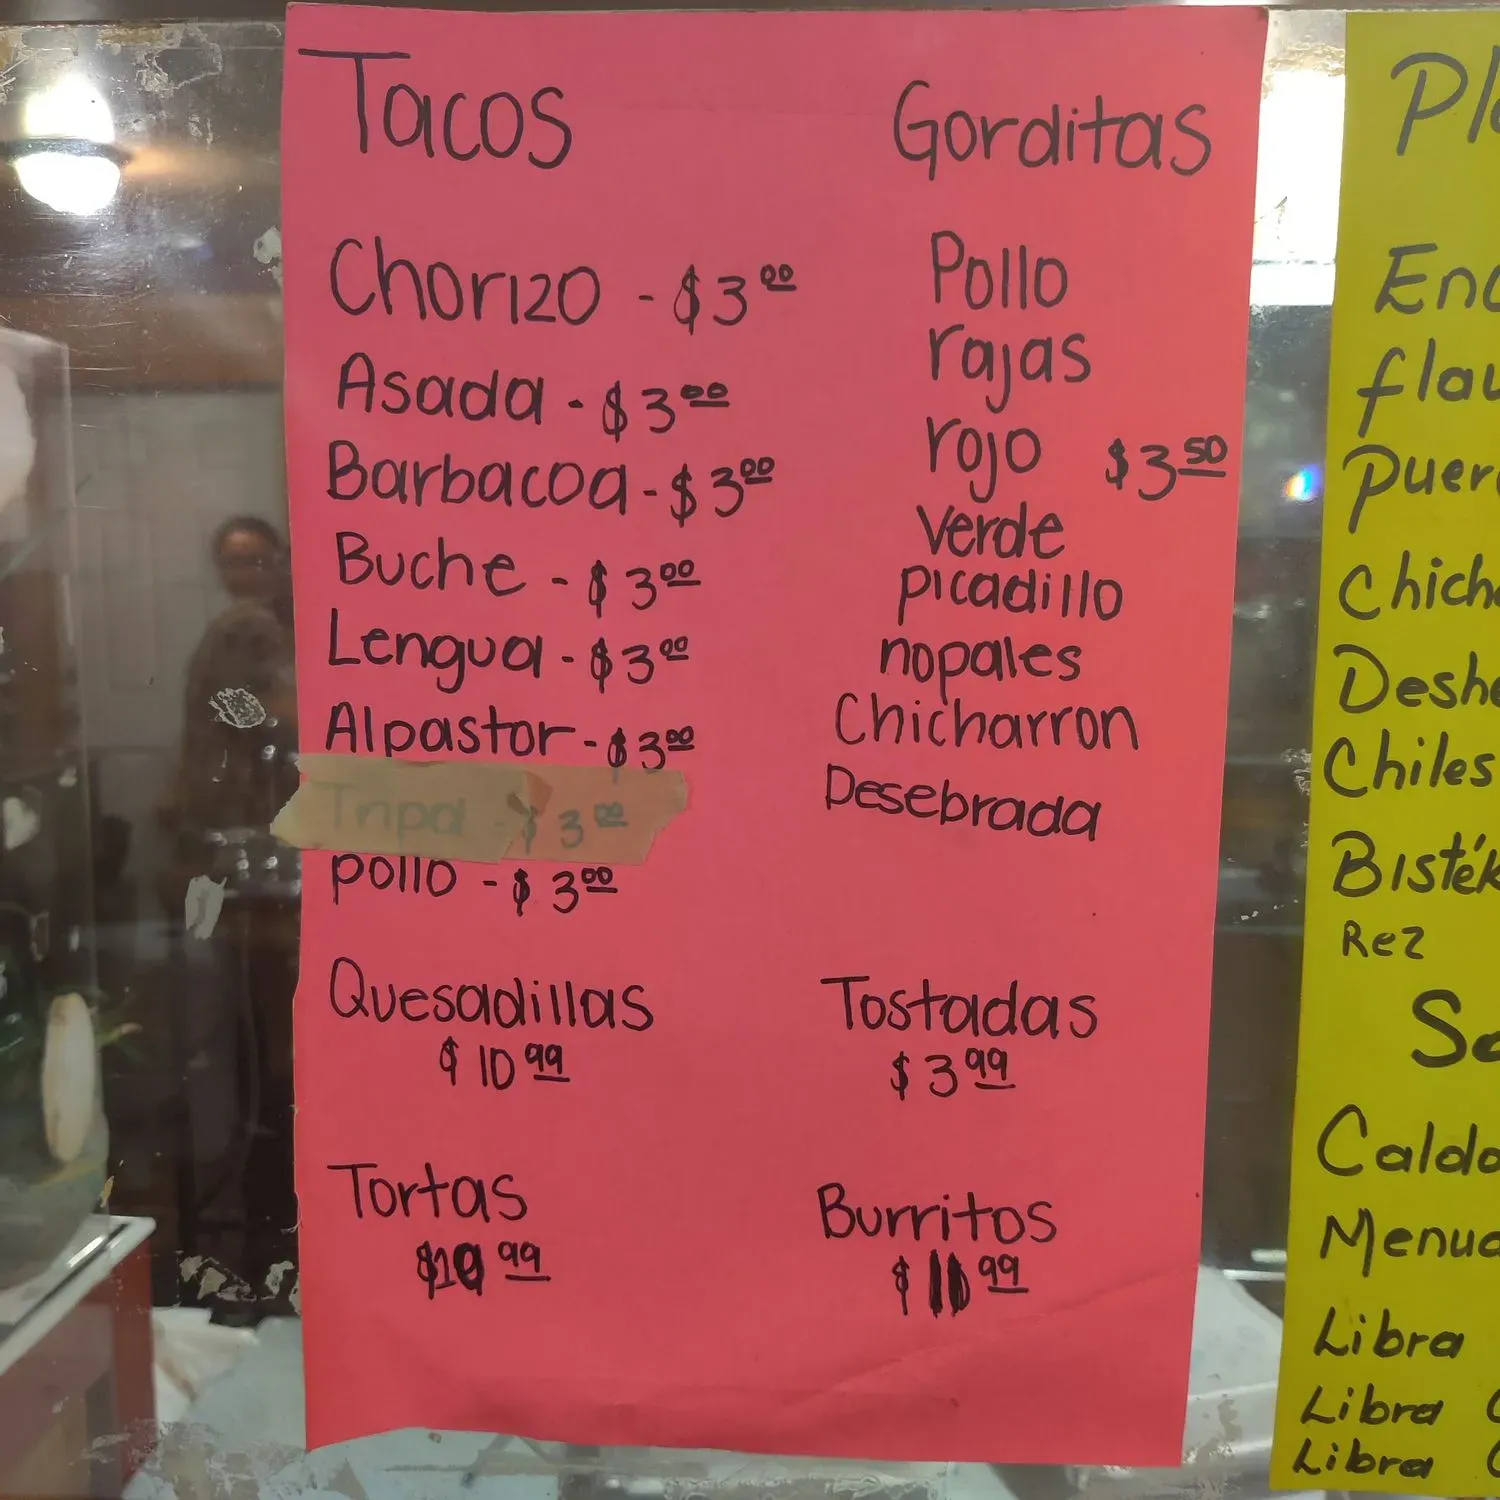 Tacos
Chorizo - $3.00
Asada - $3.00
Barbacoa - $3.00
Buche - $3.00
Lengua - $3.00
Alpastor - $3.00
Tripa - $3.00
pollo - $3.00
Quesadillas
$10.99
Tortas
$10.99
Gorditas
Pollo
rajas
rojo $3.50
verde
picadillo
nopales
Chicharron
Desebrada
Tostadas
$3.99
Burritos
$11.99
Bisték
Rez
Chiles
Libra
Libra
Libra